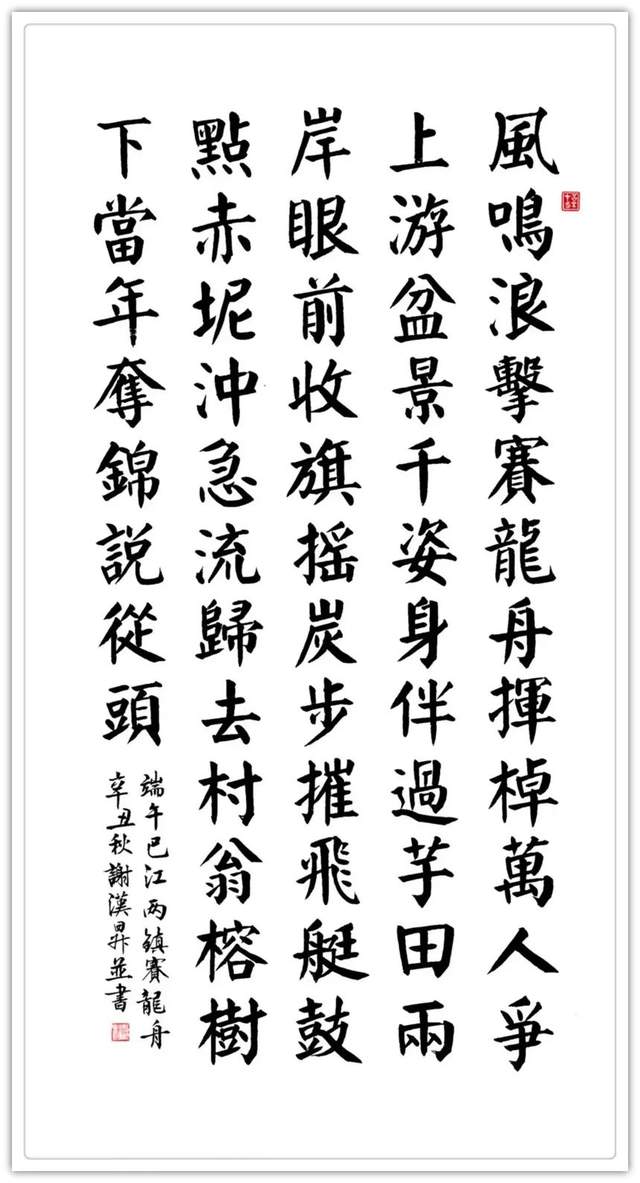 風鳴浪擊賽龍舟揮棹萬人爭
上游盆景千姿身伴過芋田兩
岸眼前收旗摇炭步摧飛艇鼓
點赤坭沖急流歸去村翁榕樹
下當年奪錦説從頭
端午巴江两镇賽龍舟
辛丑秋謝漢昇並書